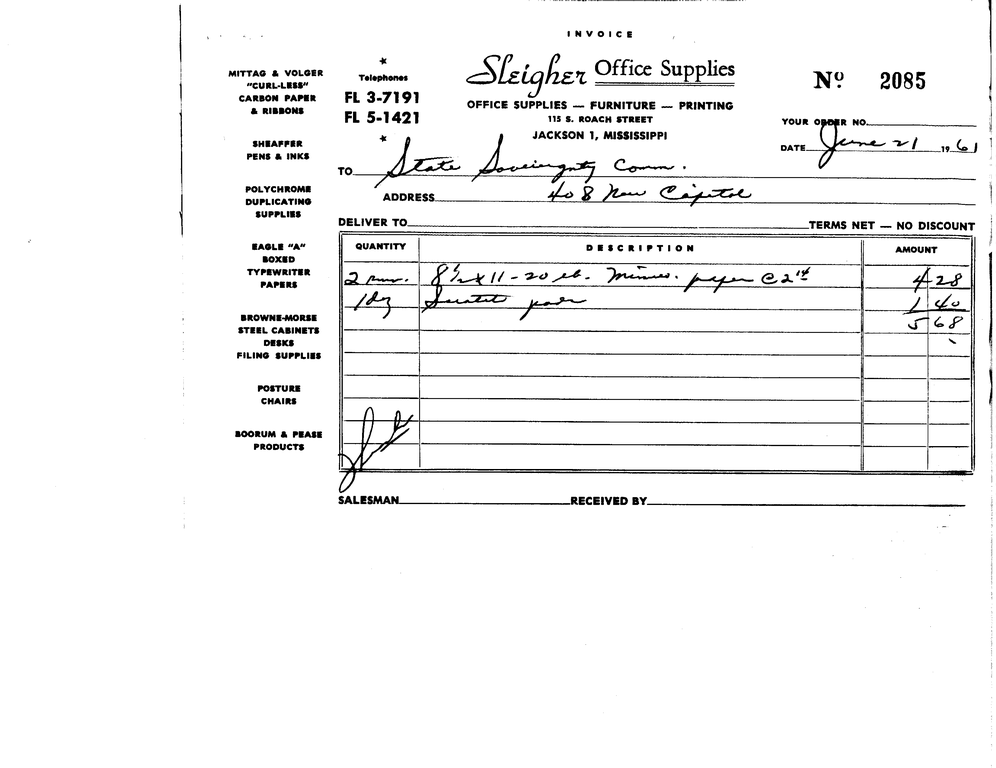 INVOICE
MITTAG & VOLGER
"CURL-LESS"
CARBON PAPER
& RIBBONS
SHEAFFER
PENS & INKS
POLYCHROME
DUPLICATING
SUPPLIES
EAGLE "A"
BOXED
TYPEWRITER
PAPERS
BROWNE-MORSE
STEEL CABINETS
DESKS
FILING SUPPLIES
POSTURE
CHAIRS
BOORUM & PEASE
PRODUCTS
★
Telephones
FL 3-7191
FL 5-1421
★
Sleigher Office Supplies
OFFICE SUPPLIES — FURNITURE — PRINTING
115 S. ROACH STREET
JACKSON 1, MISSISSIPPI
Nº 2085
YOUR ORDER NO.
DATE June 21 1961
TO State Sovereignty Comm.
ADDRESS 408 New Capitol
DELIVER TO TERMS NET — NO DISCOUNT
QUANTITY DESCRIPTION AMOUNT
2 8 1/2 x 11 - 20 lb. Mimeo. paper @ 2 14 4 28
1 dz pads 1 40
5 68
SALESMAN RECEIVED BY